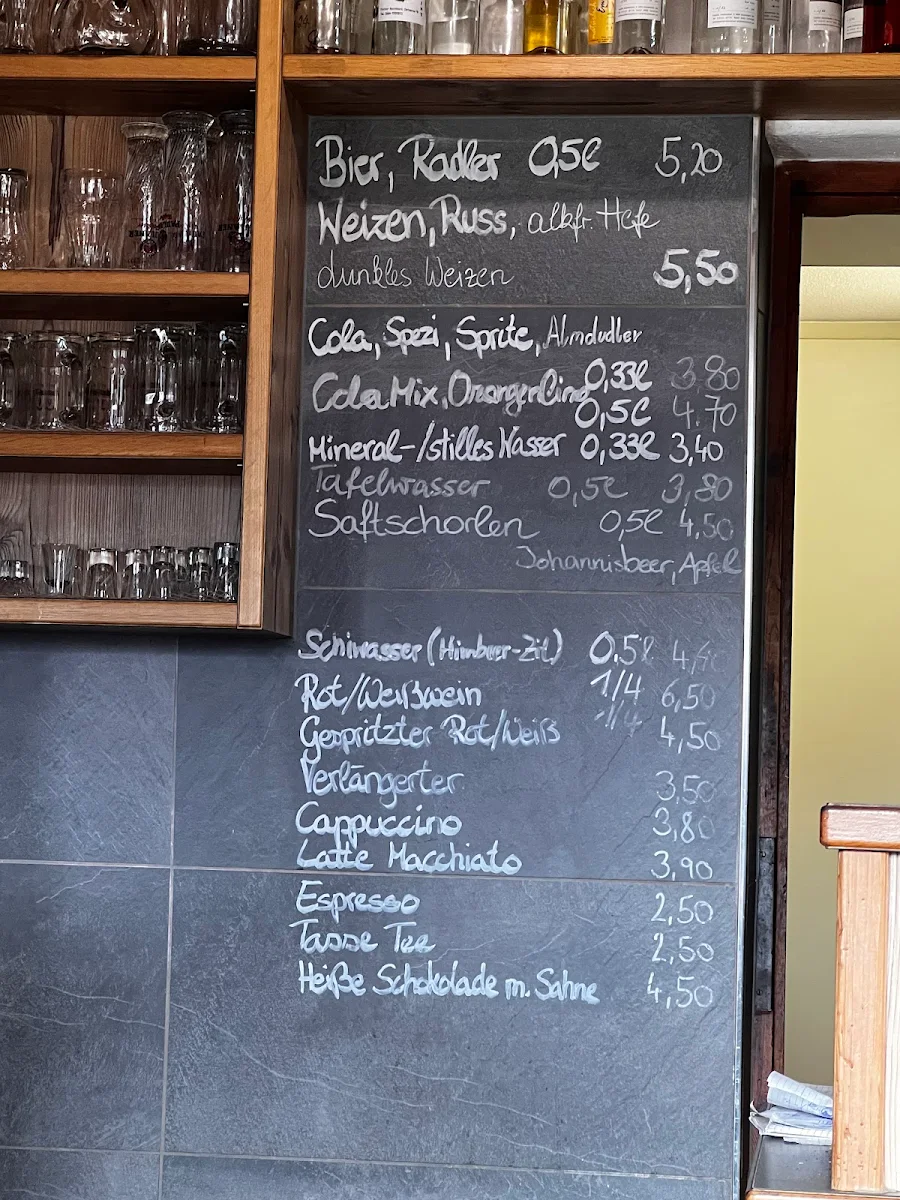 Bier, Radler 0,5l 5,20
Weizen, Russ, alkfr. Hefe
dunkles Weizen 5,50
Cola, Spezi, Sprite, Almdudler
0,33l 3.80
Cola Mix, Orangenlimo
0,5l 4.70
Mineral-/stilles Wasser 0,33l 3,40
Tafelwasser 0,5l 3,80
Saftschorlen 0,5l 4,50
Johannisbeer, Apfel
Schiwasser (Himbeer-Zit.) 0,5l
Rot/Weißwein 1/4 6,50
Gespritzter Rot/Weiß 1/4 4,50
Verlängerter 3,50
Cappuccino 3,80
Latte Macchiato 3,90
Espresso 2,50
Tasse Tee 2,50
Heiße Schokolade m. Sahne 4,50